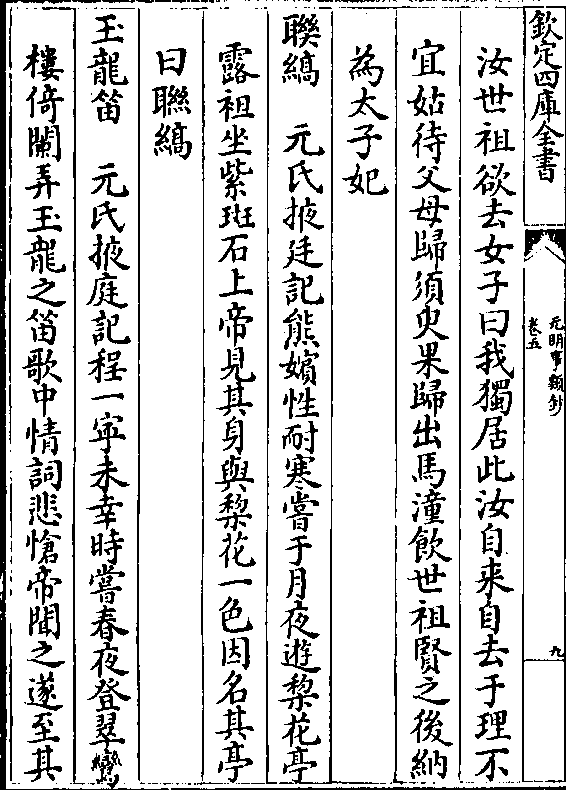 欽定四庫全書
元明事類鈔
卷五
九
汝世祖欲去女子曰我獨居此汝自来自去于理不
宜姑待父母歸須臾果歸出馬湩飲世祖賢之後納
為太子妃
聯縞　元氏掖廷記熊嬪性耐寒嘗于月夜遊棃花亭
露袒坐紫斑石上帝見其身與棃花一色因名其亭
曰聯縞
玉龍笛　元氏掖庭記程一寧未幸時嘗春夜登翠鸞
樓倚闌弄玉龍之笛歌中情詞悲愴帝聞之遂至其